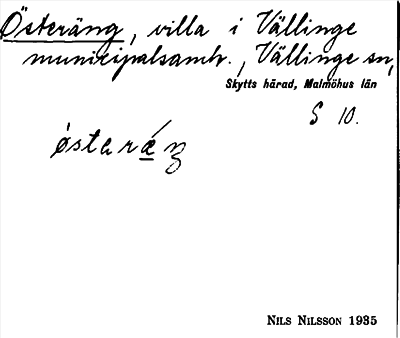 Österäng, villa i Vällinge
municipalsamh., Vällinge sn,
Skytts härad, Malmöhus län
S 10.
østaræŋ
NILS NILSSON 1935